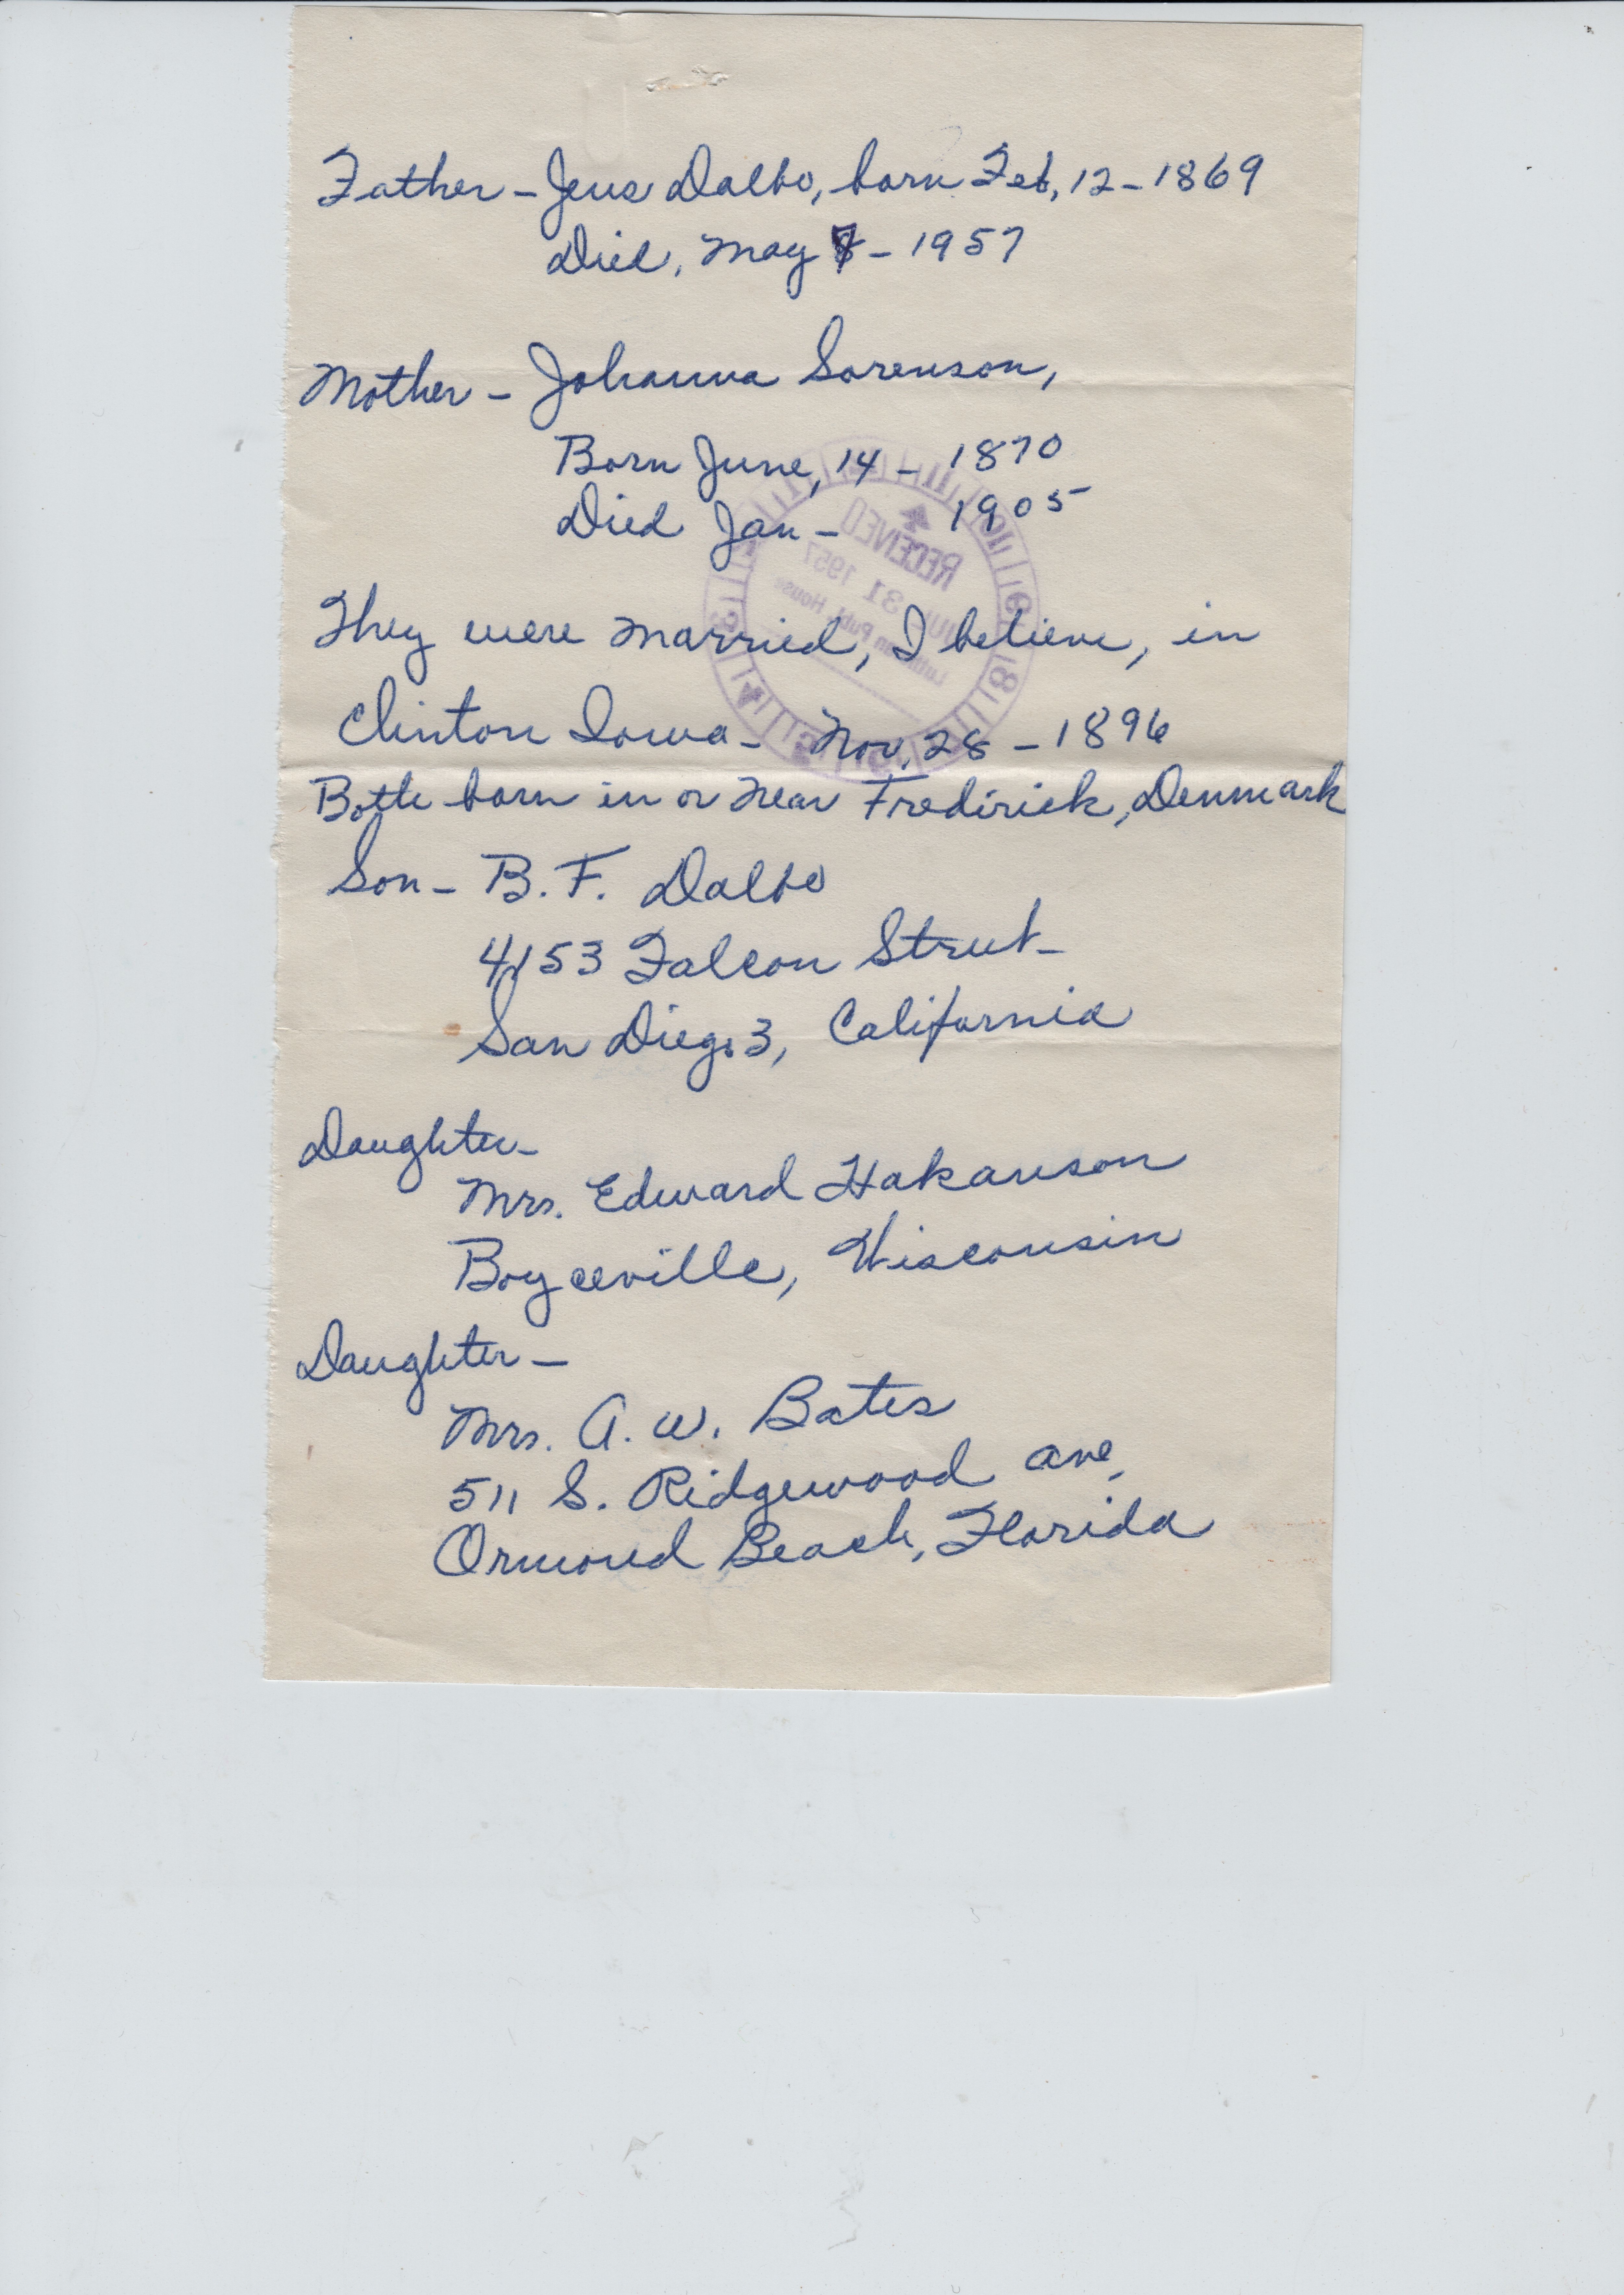 Father - Jens Dalbo, born Feb, 12 - 1869
Died, May - 1957
Mother - Johanna Sorenson,
Born June, 14 - 1870
Died Jan - 1905
They were married, I believe, in
Clinton Iowa - Nov. 28 - 1896
Both born in or near Fredirick, Denmark
Son - B. F. Dalbo
4153 Falcon Street -
San Diego 3, California
Daughter -
Mrs. Edward Hakanson
Boyceville, Wisconsin
Daughter -
Mrs. A. W. Bates
511 S. Ridgewood Ave,
Ormond Beach, Florida
RECEIVED
31 1957
Publ. House